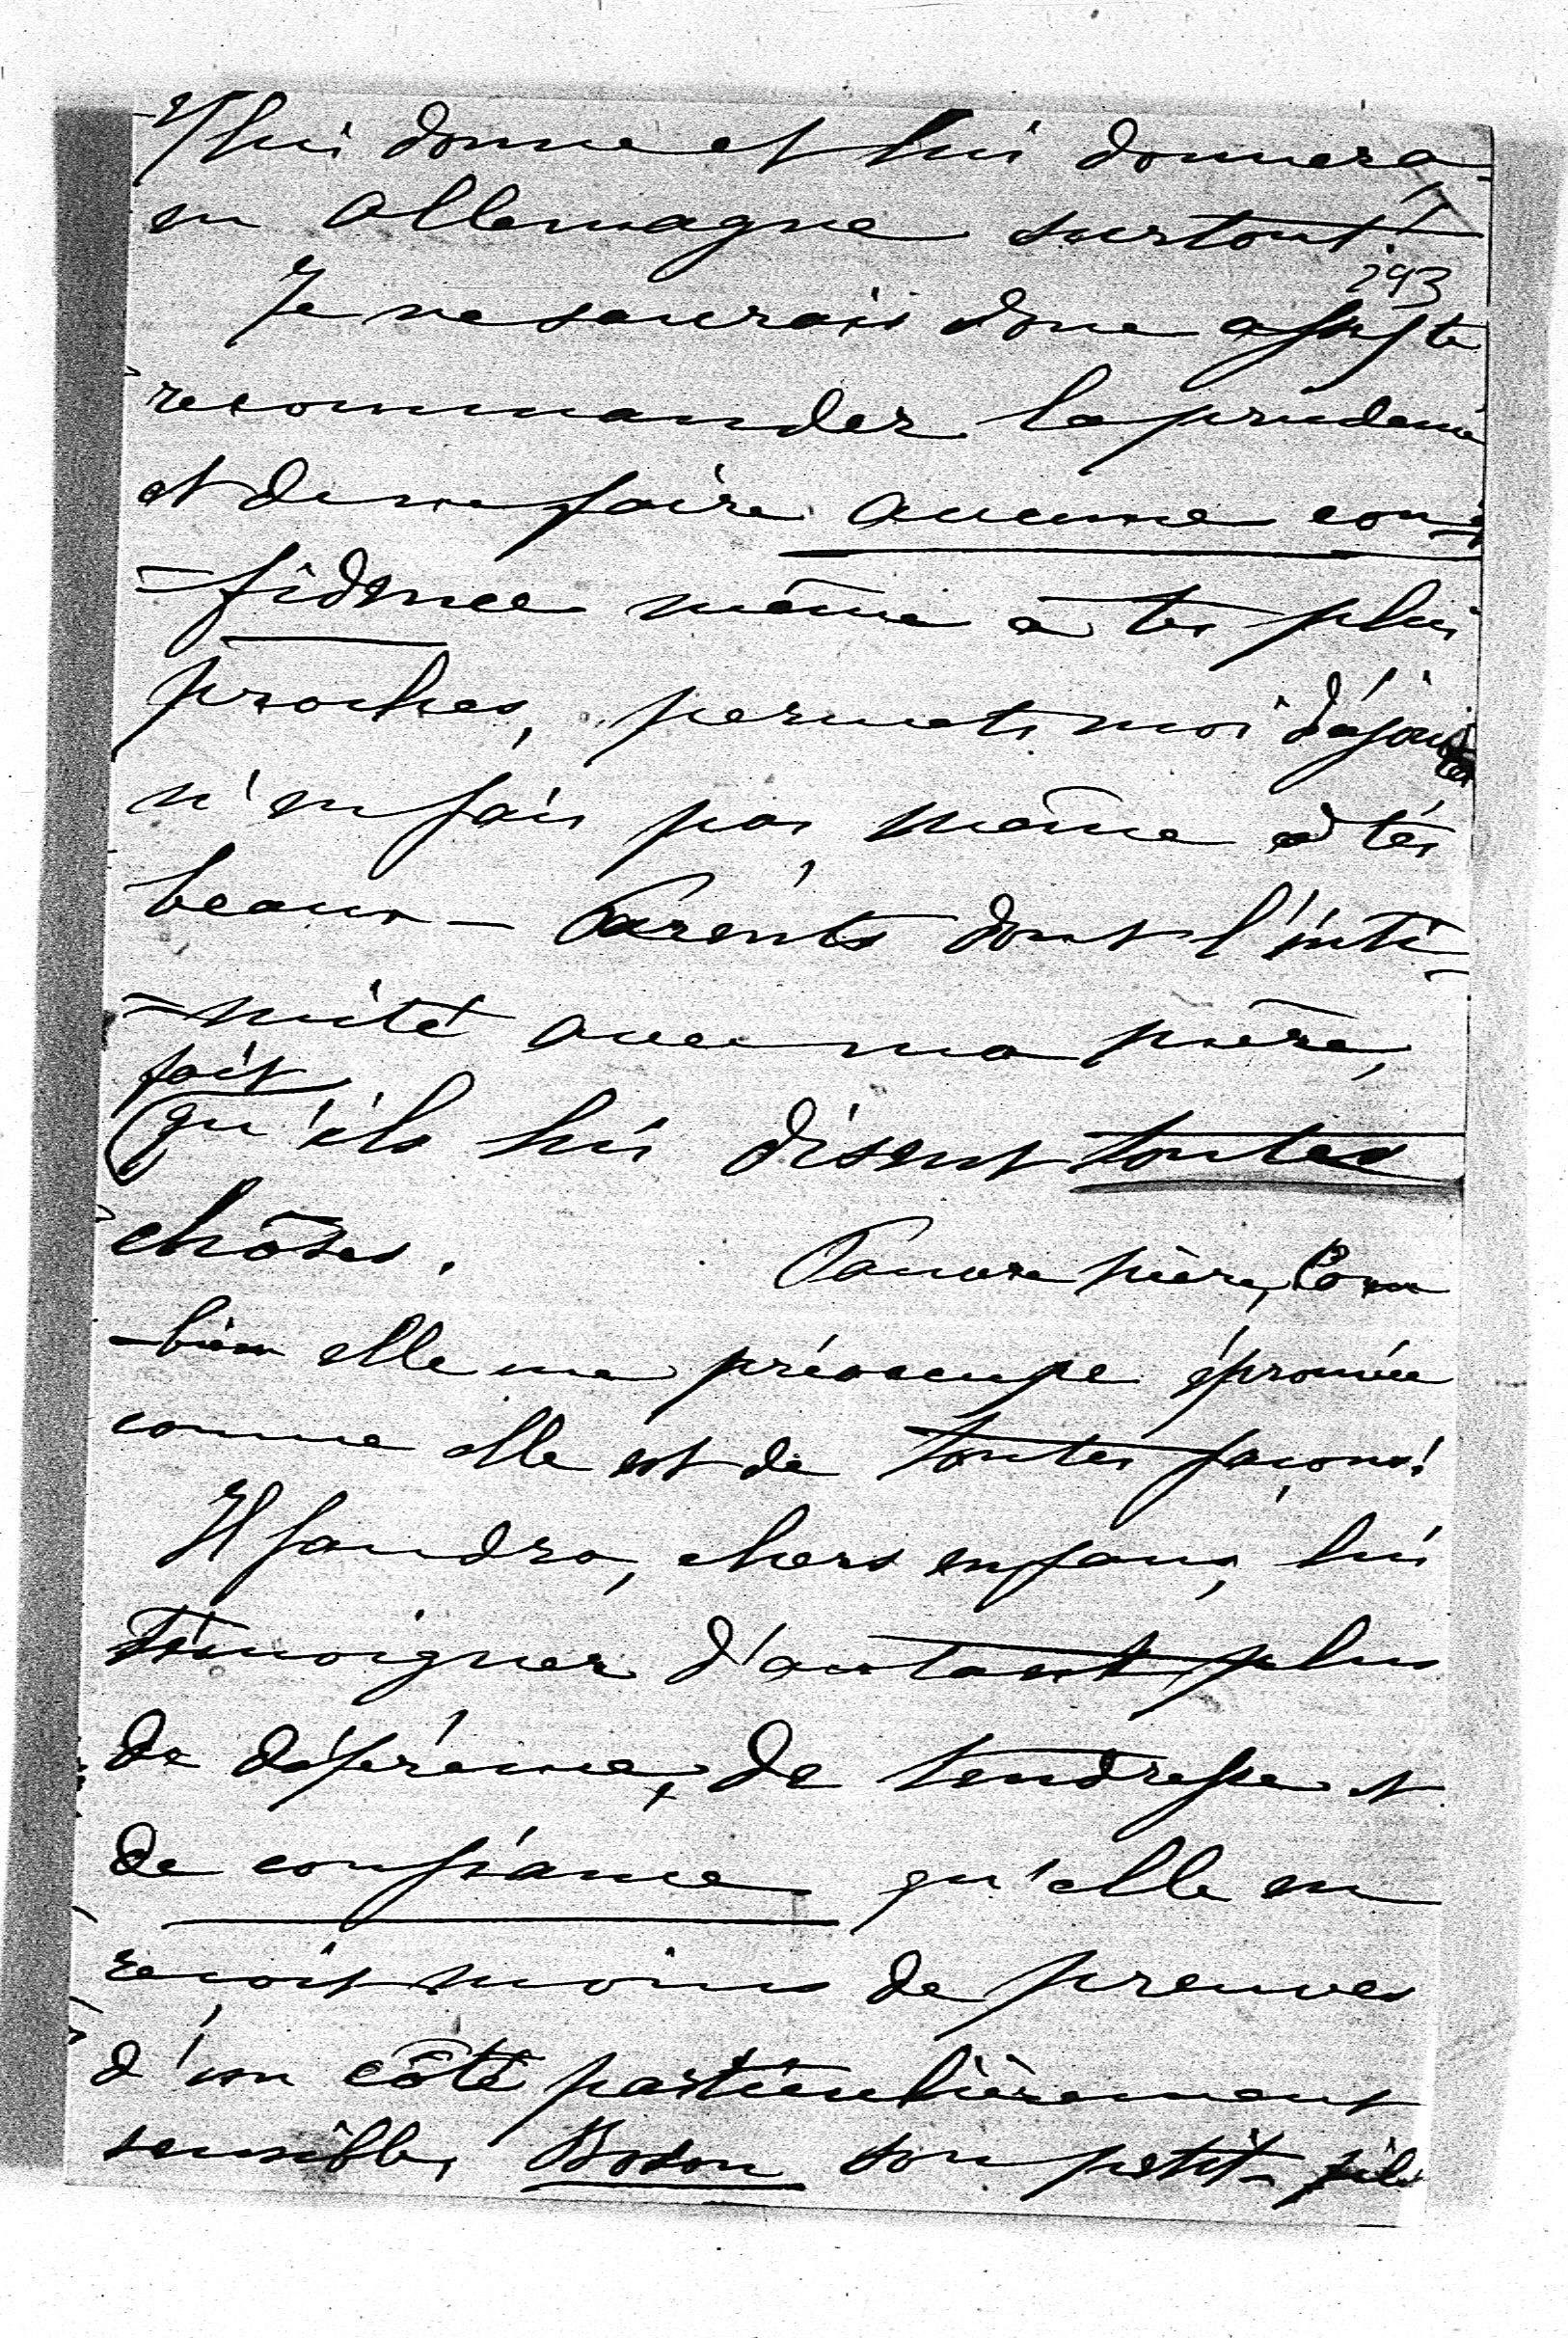 lui donne et lui donnera,
en Allemagne surtout!
293
Je ne saurais donc assez te
recommander la prudence
et de ne faire aucune con-
-fidence même à tes plus
proches, permets moi d'ajouter
n'en fais pas, même à tes
beaux-Parents dont l'inti-
-mité avec ma mère,
fait
qu'ils lui disent toutes
choses. Pauvre mère, Com
-bien elle me préoccupe éprouvée
comme elle est de toutes façons!
Il faudra, chers enfans, lui
témoigner d'autant plus
de déférence, de tendresse et
de confiance qu'elle en
reçoit moins de preuves
d'un côté particulièrement
sensible, Boson son petit-fils